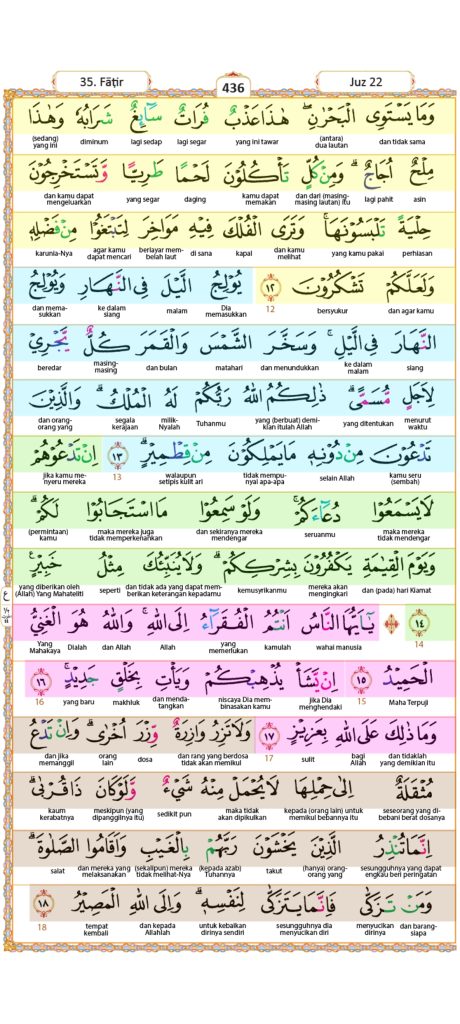 35. Fāṭir 436 Juz 22
وَمَا يَسْتَوِى الْبَحْرٰنِۖ هٰذَا عَذْبٌ فُرَاتٌ سَاۤىِٕغٌ شَرَابُهٗ وَهٰذَا
dan tidak sama (antara) dua lautan yang ini tawar lagi segar lagi sedap diminum (sedang) yang ini
مِلْحٌ اُجَاجٌۗ وَمِنْ كُلٍّ تَأْكُلُوْنَ لَحْمًا طَرِيًّا وَّتَسْتَخْرِجُوْنَ
asin lagi pahit dan dari (masing-masing lautan) itu kamu dapat memakan daging yang segar dan kamu dapat mengeluarkan
حِلْيَةً تَلْبَسُوْنَهَاۚ وَتَرَى الْفُلْكَ فِيْهِ مَوَاخِرَ لِتَبْتَغُوْا مِنْ فَضْلِهٖ
perhiasan yang kamu pakai dan kamu melihat kapal di sana berlayar membelah laut agar kamu dapat mencari karunia-Nya
وَلَعَلَّكُمْ تَشْكُرُوْنَ ١٢ يُوْلِجُ الَّيْلَ فِى النَّهَارِ وَيُوْلِجُ
dan agar kamu bersyukur 12 Dia memasukkan malam ke dalam siang dan memasukkan
النَّهَارَ فِى الَّيْلِۙ وَسَخَّرَ الشَّمْسَ وَالْقَمَرَ كُلٌّ يَّجْرِيْ
siang ke dalam malam dan menundukkan matahari dan bulan masing-masing beredar
لِاَجَلٍ مُّسَمًّىۗ ذٰلِكُمُ اللّٰهُ رَبُّكُمْ لَهُ الْمُلْكُۗ وَالَّذِيْنَ
menurut waktu yang ditentukan yang (berbuat) demikian itulah Allah Tuhanmu milik-Nyalah segala kerajaan dan orang-orang yang
تَدْعُوْنَ مِنْ دُوْنِهٖ مَا يَمْلِكُوْنَ مِنْ قِطْمِيْرٍۗ ١٣ اِنْ تَدْعُوْهُمْ
kamu seru (sembah) selain Allah tidak mempunyai apa-apa walaupun setipis kulit ari 13 jika kamu menyeru mereka
لَا يَسْمَعُوْا دُعَاۤءَكُمْۚ وَلَوْ سَمِعُوْا مَا اسْتَجَابُوْا لَكُمْۗ
maka mereka tidak mendengar seruanmu dan sekiranya mereka mendengar maka mereka juga tidak memperkenankan (permintaan) kamu
وَيَوْمَ الْقِيٰمَةِ يَكْفُرُوْنَ بِشِرْكِكُمْۗ وَلَا يُنَبِّئُكَ مِثْلُ خَبِيْرٍ
dan (pada) hari Kiamat mereka akan mengingkari kemusyrikanmu dan tidak ada yang dapat memberikan keterangan kepadamu seperti yang diberikan oleh (Allah) Yang Mahateliti
١٤ يٰٓاَيُّهَا النَّاسُ اَنْتُمُ الْفُقَرَاۤءُ اِلَى اللّٰهِۚ وَاللّٰهُ هُوَ الْغَنِيُّ
14 wahai manusia kamulah yang memerlukan Allah dan Allah Dialah Yang Mahakaya
الْحَمِيْدُ ١٥ اِنْ يَّشَأْ يُذْهِبْكُمْ وَيَأْتِ بِخَلْقٍ جَدِيْدٍۚ ١٦
Maha Terpuji 15 jika Dia menghendaki niscaya Dia membinasakan kamu dan mendatangkan makhluk yang baru 16
وَمَا ذٰلِكَ عَلَى اللّٰهِ بِعَزِيْزٍ ١٧ وَلَا تَزِرُ وَازِرَةٌ وِّزْرَ اُخْرٰىۗ وَاِنْ تَدْعُ
dan tidaklah yang demikian itu bagi Allah sulit 17 dan rang yang berdosa tidak akan memikul dosa orang lain dan jika memanggil
مُثْقَلَةٌ اِلٰى حِمْلِهَا لَا يُحْمَلْ مِنْهُ شَيْءٌ وَّلَوْ كَانَ ذَا قُرْبٰىۗ
seseorang yang dibebani berat dosanya kepada (orang lain) untuk memikul bebannya itu maka tidak akan dipikulkan sedikit pun meskipun (yang dipanggilnya itu) kaum kerabatnya
اِنَّمَا تُنْذِرُ الَّذِيْنَ يَخْشَوْنَ رَبَّهُمْ بِالْغَيْبِ وَاَقَامُوا الصَّلٰوةَۗ
sesungguhnya yang dapat engkau beri peringatan (hanya) orang-orang yang takut (kepada azab) Tuhannya (sekalipun) mereka tidak melihat-Nya dan mereka yang melaksanakan salat
وَمَنْ تَزَكّٰى فَاِنَّمَا يَتَزَكّٰى لِنَفْسِهٖۗ وَاِلَى اللّٰهِ الْمَصِيْرُ ١٨
dan barangsiapa menyucikan dirinya sesungguhnya dia menyucikan diri untuk kebaikan dirinya sendiri dan kepada Allahlah tempat kembali 18